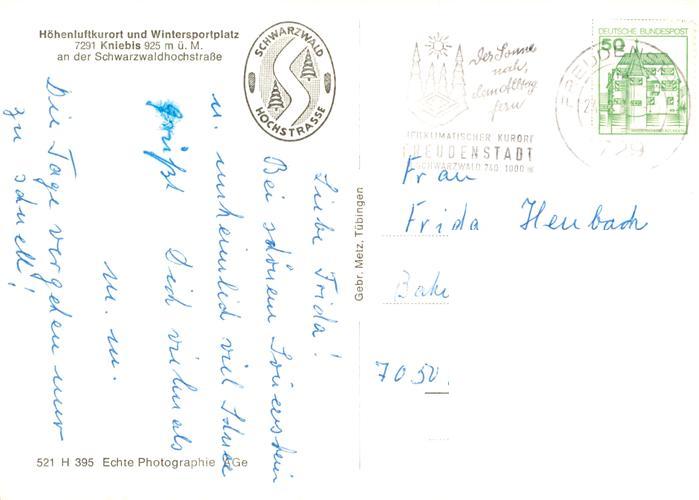 Höhenluftkurort und Wintersportplatz
7291 Kniebis 925 m ü. M.
an der Schwarzwaldhochstraße
SCHWARZWALD
HOCHSTRASSE
Liebe Frida!
Bei schönem Sonnenschein
u. unheimlich viel Schnee
grüßt Dich vielmals
m. m.
Die Tage vergehen nur
zu schnell!
521 H 395 Echte Photographie AGe
Gebr. Metz, Tübingen
Der Sonne
nah,
dem Alltag
fern
HEILKLIMATISCHER KURORT
FREUDENSTADT
SCHWARZWALD 740 1000 m
DEUTSCHE BUNDESPOST
50
FREUDEN
729
Frau
Frida Heubach
7050